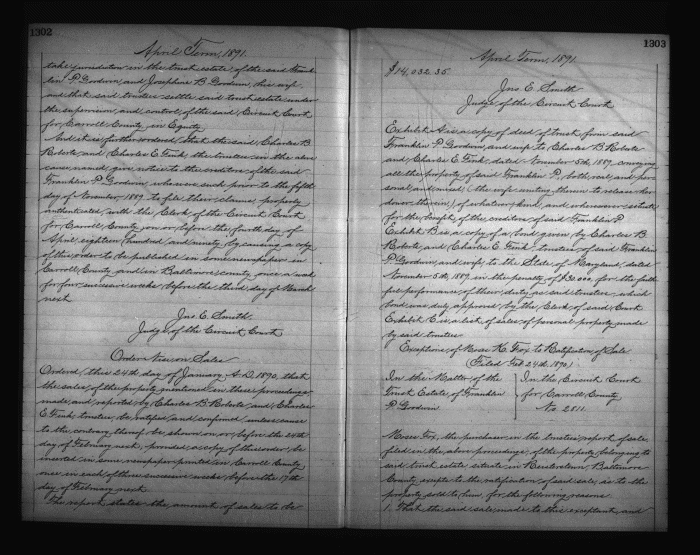 1302
April Term, 1891.
take jurisdiction in the trust estate of the said Frank-
lin P. Goodwin, and Josephine B. Goodwin, his wife
and that said trustees settle said trust estate under
the supervision and control of the said Circuit Court
for Carroll County, in Equity.
And it is further ordered, that the said Charles B.
Roberts, and Charles E. Fink, the trustees in the above
cause named, give notice to the creditors of the said
Franklin P. Goodwin, who were such prior to the fifth
day of November, 1889, to file their claims, properly
authenticated with the Clerk of the Circuit Court
for Carroll County, on or before the fourth day of
April, eighteen hundred and ninety, by causing a copy
of this order to be published in some newspaper in
Carroll County and in Baltimore County, once a week
for four successive weeks before the third day of March
next.
Jno. E. Smith
Judge of the Circuit Court
Order nisi on Sales
Ordered, this 24th day of January, A.D. 1890, that
the sales of the property mentioned in these proceedings
made and reported by Charles B. Roberts, and Charles
E. Fink, trustees, be ratified and confirmed, unless cause
to the contrary thereof be shown on or before the 24th
day of February next, provided a copy of this order be
inserted in some newspaper printed in Carroll County,
once in each of three successive weeks before the 17th
day of February next.
The report states the amount of sales to be
1303
April Term, 1891.
$14,032.35.
Jno. E. Smith
Judge of the Circuit Court
Exhibit A is a copy of deed of trust from said
Franklin P. Goodwin, and wife to Charles B. Roberts
and Charles E. Fink, dated November 5th, 1889, conveying
all the property of said Franklin P., both real, and per-
sonal and mixed (the wife uniting therein to release her
dower therein), of whatever kind, and wheresoever situate
for the benefit of the creditors of said Franklin P.
Exhibit B is a copy of a bond given by Charles B.
Roberts, and Charles E. Fink, trustees of said Franklin
P. Goodwin, and wife, to the State of Maryland, dated
November 5th, 1889, in the penalty of $30,000, for the faith-
ful performance of their duty as said trustees, which
bond was duly approved by the Clerk of said Court.
Exhibit C is a list of sales of personal property made
by said trustees
Exceptions of Moses K. Fox to Ratification of Sale
(Filed Feb. 24th, 1890)
In the Matter of the
Trust Estate of Franklin
P. Goodwin
In the Circuit Court
for Carroll County
No. 2811.
Moses Fox, the purchaser in the trustees report of sale,
filed in the above proceedings, of the property belonging to
said trust estate situate in Reisterstown Baltimore
County, excepts to the ratification of said sale, as to the
property sold to him, for the following reasons
1. That the said sale, made to this exceptant, and